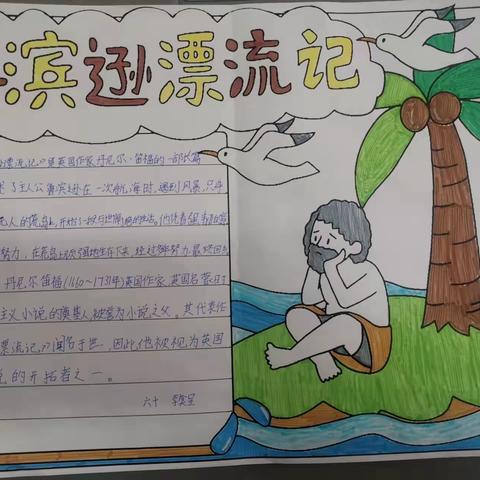 滨逊漂流记
漂流记》是英国作家丹尼尔·笛福的一部长篇
了主人公鲁滨逊在一次航海时,遇到风暴,只身
无人的荒岛上,开始了一段与世隔绝的生活。他凭着
努力,在荒岛上顽强地生存下来,经过努力,最终回到
丹尼尔笛福(1660~1731年)英国作家,英国启蒙时
主义小说的奠基人,被誉为小说之父。其代表作
漂流记》闻名于世,因此他被视为英国
说的开拓者之一。
六十